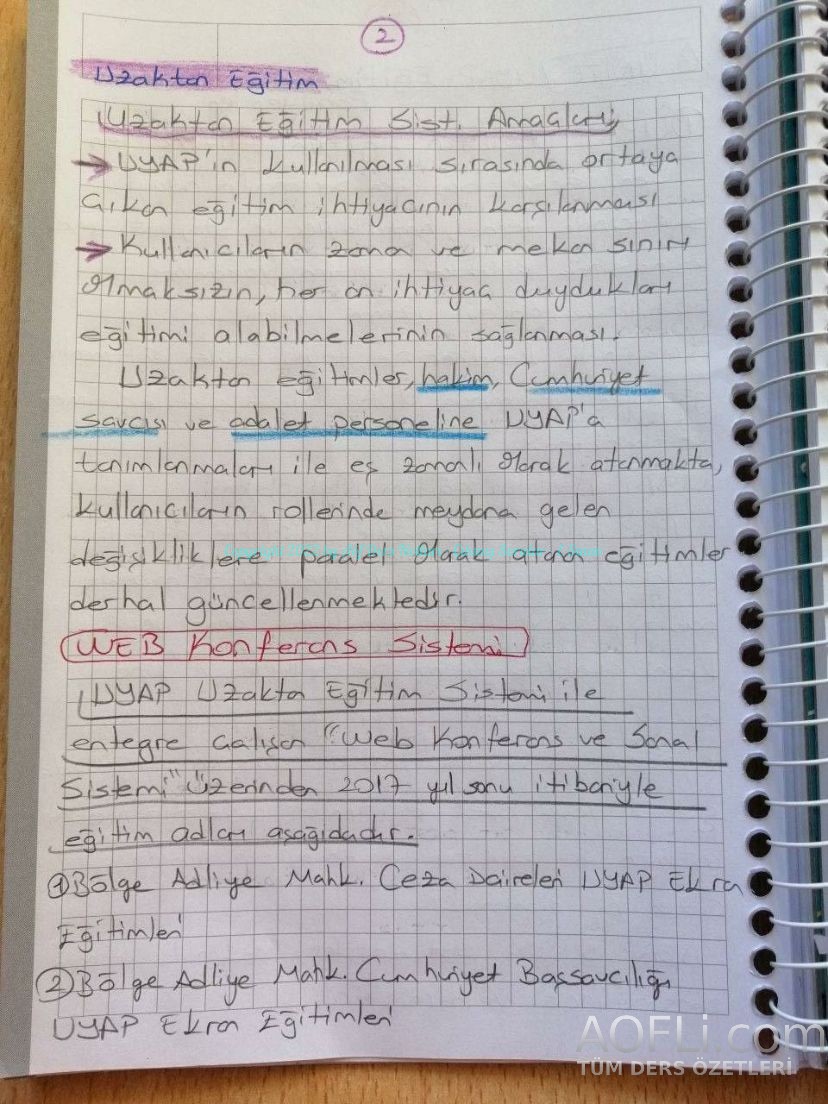 2
Uzaktan Eğitim
Uzaktan Eğitim Sist. Amaçları;
→ UYAP'ın kullanılması sırasında ortaya
çıkan eğitim ihtiyacının karşılanması
→ Kullanıcıların zaman ve mekan sınırı
olmaksızın, her an ihtiyaç duydukları
eğitimi alabilmelerinin sağlanması.
Uzaktan eğitimler, hakim, Cumhuriyet
savcısı ve adalet personeline UYAP'a
tanımlanmaları ile eş zamanlı olarak atanmakta,
kullanıcıların rollerinde meydana gelen
değişikliklere paralel olarak atanan eğitimler
derhal güncellenmektedir.
WEB Konferans Sistemi
UYAP Uzaktan Eğitim Sistemi ile
entegre çalışan "Web Konferans ve Sanal
Sistemi" üzerinden 2017 yıl sonu itibariyle
eğitim adları aşağıdadır.
① Bölge Adliye Mahk. Ceza Daireleri UYAP Ekran
Eğitimleri
② Bölge Adliye Mahk. Cumhuriyet Başsavcılığı
UYAP Ekran Eğitimleri
AOFLi.com
TÜM DERS ÖZETLERİ